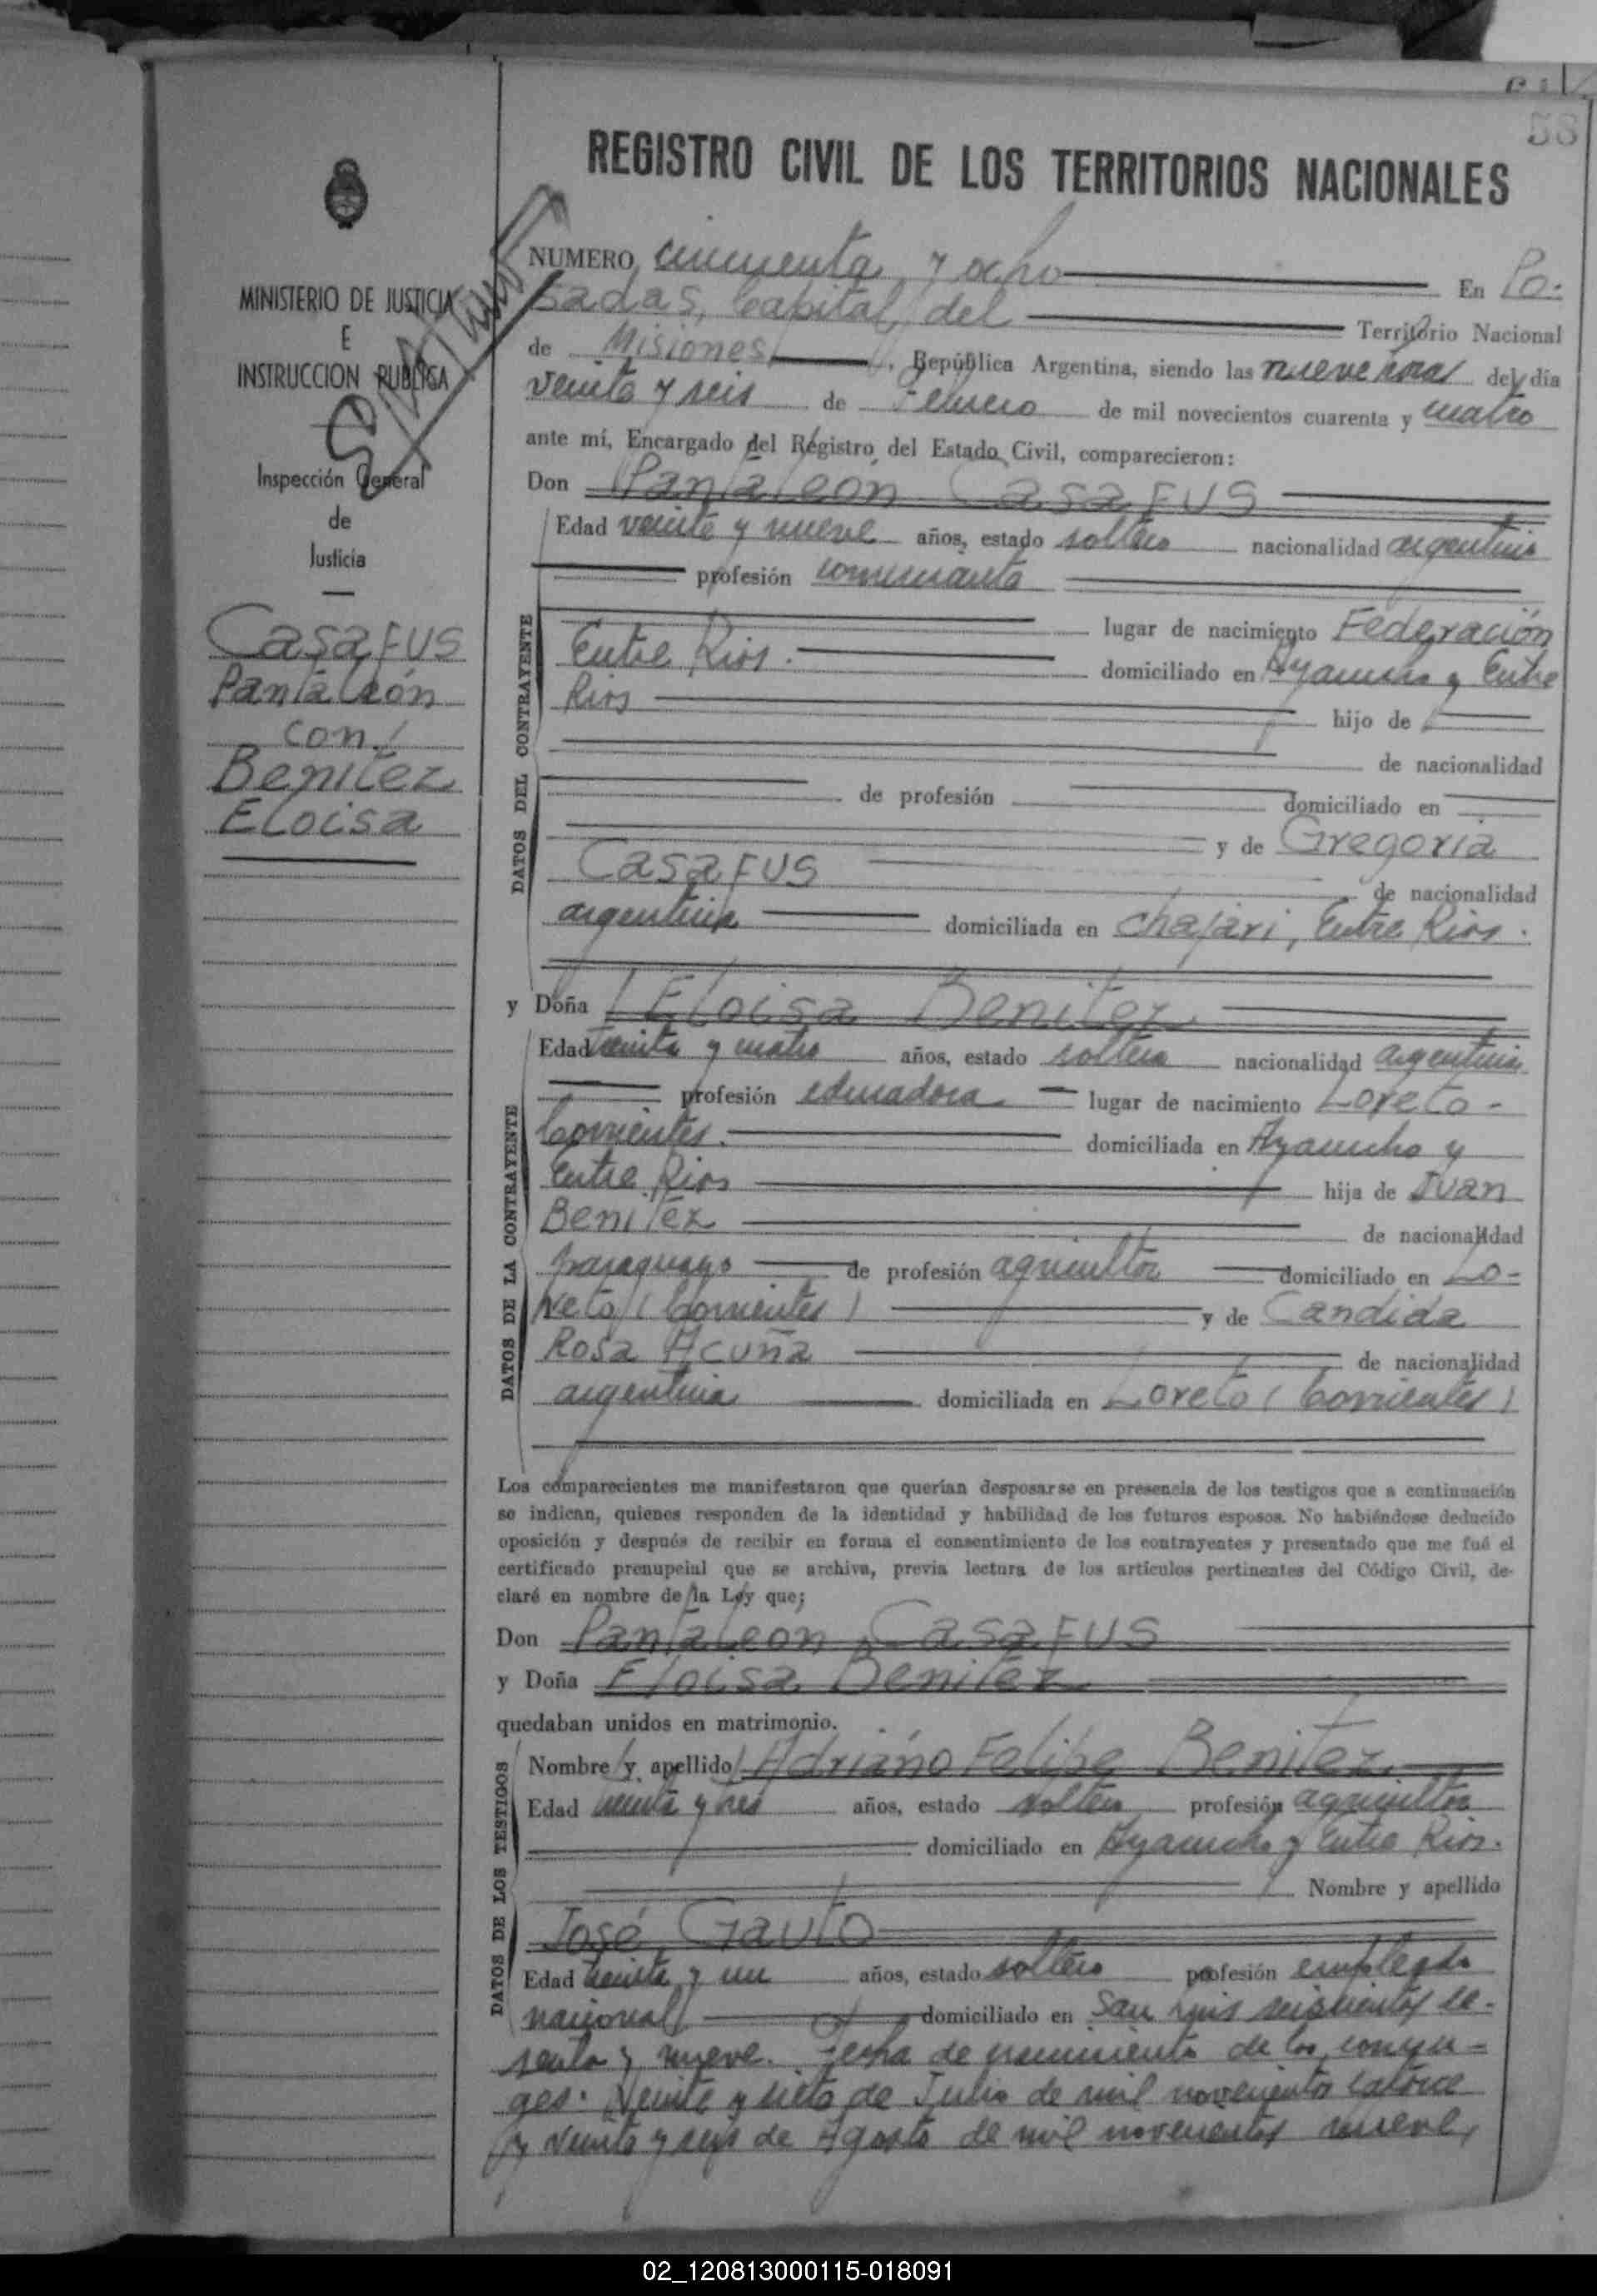 58
REGISTRO CIVIL DE LOS TERRITORIOS NACIONALES
MINISTERIO DE JUSTICIA
E
INSTRUCCION PUBLICA
Inspección General
de
Justicia
Casafus
Pantaleón
con
Benitez
Eloisa
NUMERO cincuenta y ocho En Po-
sadas, Capital del Territorio Nacional
de Misiones, República Argentina, siendo las nueve horas del día
veinte y seis de Febrero de mil novecientos cuarenta y cuatro
ante mí, Encargado del Registro del Estado Civil, comparecieron:
Don Pantaleón Casafus
DATOS DEL CONTRAYENTE
Edad veinte y nueve años, estado soltero nacionalidad argentino
profesión comerciante
lugar de nacimiento Federación
Entre Rios. domiciliado en Ayacucho y Entre
Rios hijo de
de nacionalidad
de profesión domiciliado en
y de Gregoria
Casafus de nacionalidad
argentina domiciliada en Chajari, Entre Rios.
y Doña Eloisa Benitez
DATOS DE LA CONTRAYENTE
Edad treinta y cuatro años, estado soltera nacionalidad argentina
profesión educadora lugar de nacimiento Loreto-
Corrientes. domiciliada en Ayacucho y
Entre Rios hija de Juan
Benitez de nacionalidad
paraguayo de profesión agricultor domiciliado en Lo-
reto (Corrientes) y de Candida
Rosa Acuña de nacionalidad
argentina domiciliada en Loreto (Corrientes)
Los comparecientes me manifestaron que querían desposarse en presencia de los testigos que a continuación
se indican, quienes responden de la identidad y habilidad de los futuros esposos. No habiéndose deducido
oposición y después de recibir en forma el consentimiento de los contrayentes y presentado que me fué el
certificado prenupcial que se archiva, previa lectura de los artículos pertinentes del Código Civil, de-
claré en nombre de la Ley que;
Don Pantaleon Casafus
y Doña Eloisa Benitez
quedaban unidos en matrimonio.
DATOS DE LOS TESTIGOS
Nombre y apellido Adriano Felipe Benitez
Edad y tres años, estado soltero profesión agricultor
domiciliado en Ayacucho y Entre Rios.
Nombre y apellido
José Gauto
Edad treinta y un años, estado soltero profesión empleado
nacional domiciliado en San Luis seiscientos se-
senta y nueve. Fecha de nacimiento de los cónyu-
ges: Veinte y siete de Julio de mil novecientos catorce
y veinte y seis de Agosto de mil novecientos nueve,
02_120813000115-018091